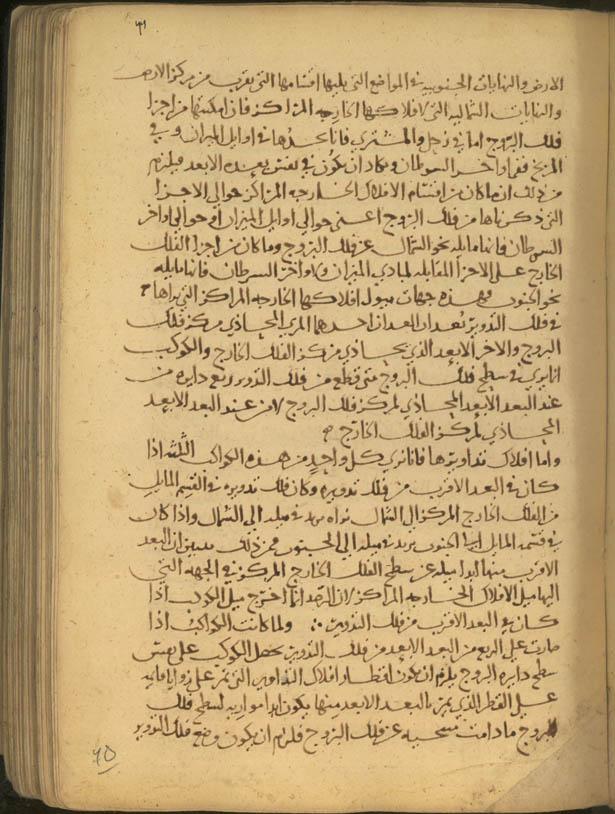 الارض والنهايات الجنوبية في المواضع التي يليها اقسامها التي تقرب من مركز الارض
والنهايات الشمالية التي لافلاكها الخارجه المراكز فان امكنتها من اجزا
فلك البروج اما في زحل والمشتري فانا نجدها في اوايل الميزان وفي
المريخ ففي اواخر السرطان ويكاد ان يكون في نفس بعده الابعد فيلزم
من ذلك ان ما كان من اقسام الافلاك الخارجه المراكز حوالي الاجزا
التي ذكرناها من فلك البروج اعني حوالي اوايل الميزان او حوالي اواخر
السرطان فانها مايله نحو الشمال عن فلك البروج وما كان من اجزا الفلك
الخارج على الاجزا المقابله لمبادي الميزان ولاواخر السرطان فانها مايله
نحو الجنوب فهذه جهات ميول افلاكها الخارجه المراكز التي نراها
في فلك التدوير بعدان ابعدان احدهما المري المحاذي مركز فلك
البروج والاخر الابعد الذي يحاذي مركز الفلك الخارج والكوكب
انما يري في سطح فلك البروج متى قطع من فلك التدوير ربع دايره من
عند البعد الابعد المحاذي لمركز فلك البروج لا من عند البعد الابعد
المحاذي لمركز الفلك الخارج
واما افلاك تداويرها فانا نري كل واحد من هذه الكواكب الثلثه اذا
كان في البعد الاقرب من فلك تدويره وكان فلك تدويره في القسم المايل
من الفلك الخارج المركز الى الشمال نراه يزيد في ميله الى الشمال واذا كان
في قسمه المايل الى الجنوب يزيد في ميله الي الجنوب فمن ذلك يتبين ان البعد
الاقرب منها ابدا ميله عن سطح الفلك الخارج المركز في الجهه التي
اليها ميل الافلاك الخارجه المراكز لان الرصد انما اخرج ميل الكوكب اذا
كان في البعد الاقرب من فلك التدوير ولما كانت الكواكب اذا
صارت على الربع من البعد الابعد من فلك التدوير تحصل الكوكب على نفس
سطح دايره البروج يلزم ان يكون اقطار افلاك التداوير التي تمر على زوايا قايمه
على القطر الذي يمر بالبعد الابعد منها يكون ابدا موازيه لسطح فلك
البروج ما دامت متنحيه عن فلك البروج فلزم ان يكون وضع فلك التدوير